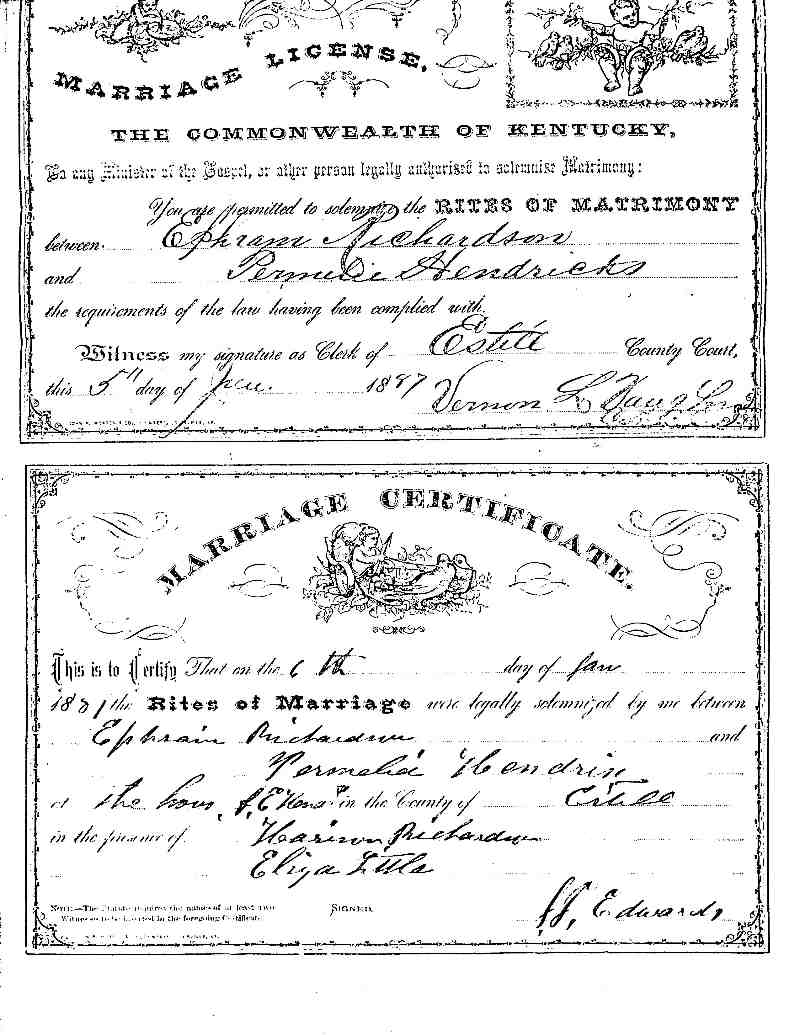 MARRIAGE LICENSE.
THE COMMONWEALTH OF KENTUCKY,
To any Minister of the Gospel, or other person legally authorised to solemnise Matrimony:
You are permitted to solemnize the RITES OF MATRIMONY
between Ephram Richardson
and Permelie Hendricks
the requirements of the law having been complied with.
Witness my signature as Clerk of Estill County Court,
this 5th day of Jan. 1887 Vernon L
MARRIAGE CERTIFICATE.
This is to Certify That on the 6 th day of Jan
188 the Rites of Marriage were legally solemnized by me between
Ephraim Richardson and
Permelia Hendrix
at the hous in the County of Estill
in the presence of Harison Richardson
Eliza Little
NOTE.—The Statute requires the names of at least two
Witnesses to be inserted in the foregoing Certificate.
SIGNED,
Edwards